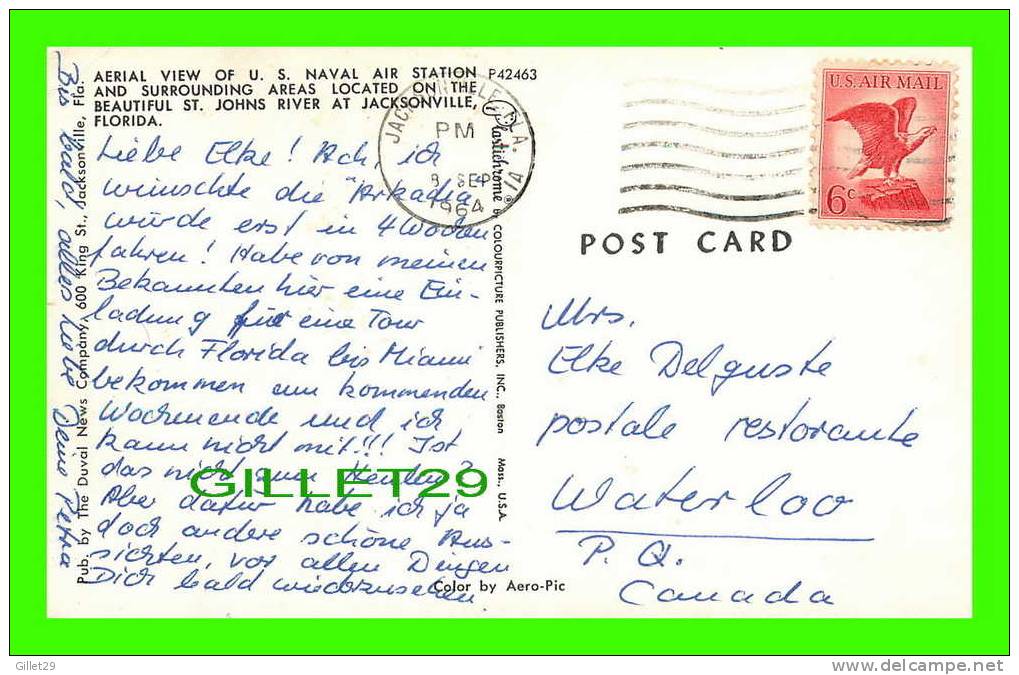 AERIAL VIEW OF U. S. NAVAL AIR STATION
AND SURROUNDING AREAS LOCATED ON THE
BEAUTIFUL ST. JOHNS RIVER AT JACKSONVILLE,
FLORIDA.
P42463
Liebe Elke! Ach, ich
wünschte die "Arkadia"
würde erst in 4 Wochen
fahren! Habe von meinen
Bekannten hier eine Ein-
ladung für eine Tour
durch Florida bis Miami
bekommen am kommenden
Wochenende und ich
kann nicht mit!!! Ist
das nicht zum Heulen?
Aber dafür habe ich ja
doch andere schöne Aus-
sichten, vor allen Dingen
Dich bald wiederzusehen.
Bis bald, alles Liebe Deine Petra
Pub. by The Duval News Company, 600 King St., Jacksonville, Fla.
Plastichrome by COLOURPICTURE PUBLISHERS, INC., Boston Mass., U.S.A.
JACKSONVILLE FLA.
PM
8 SEP
1964
U.S. AIR MAIL
6c
POST CARD
Mrs.
Elke Delguste
postale restorante
Waterloo
P. Q.
Canada
Color by Aero-Pic
GILLET29
Gillet29
http://www.delcampe.net